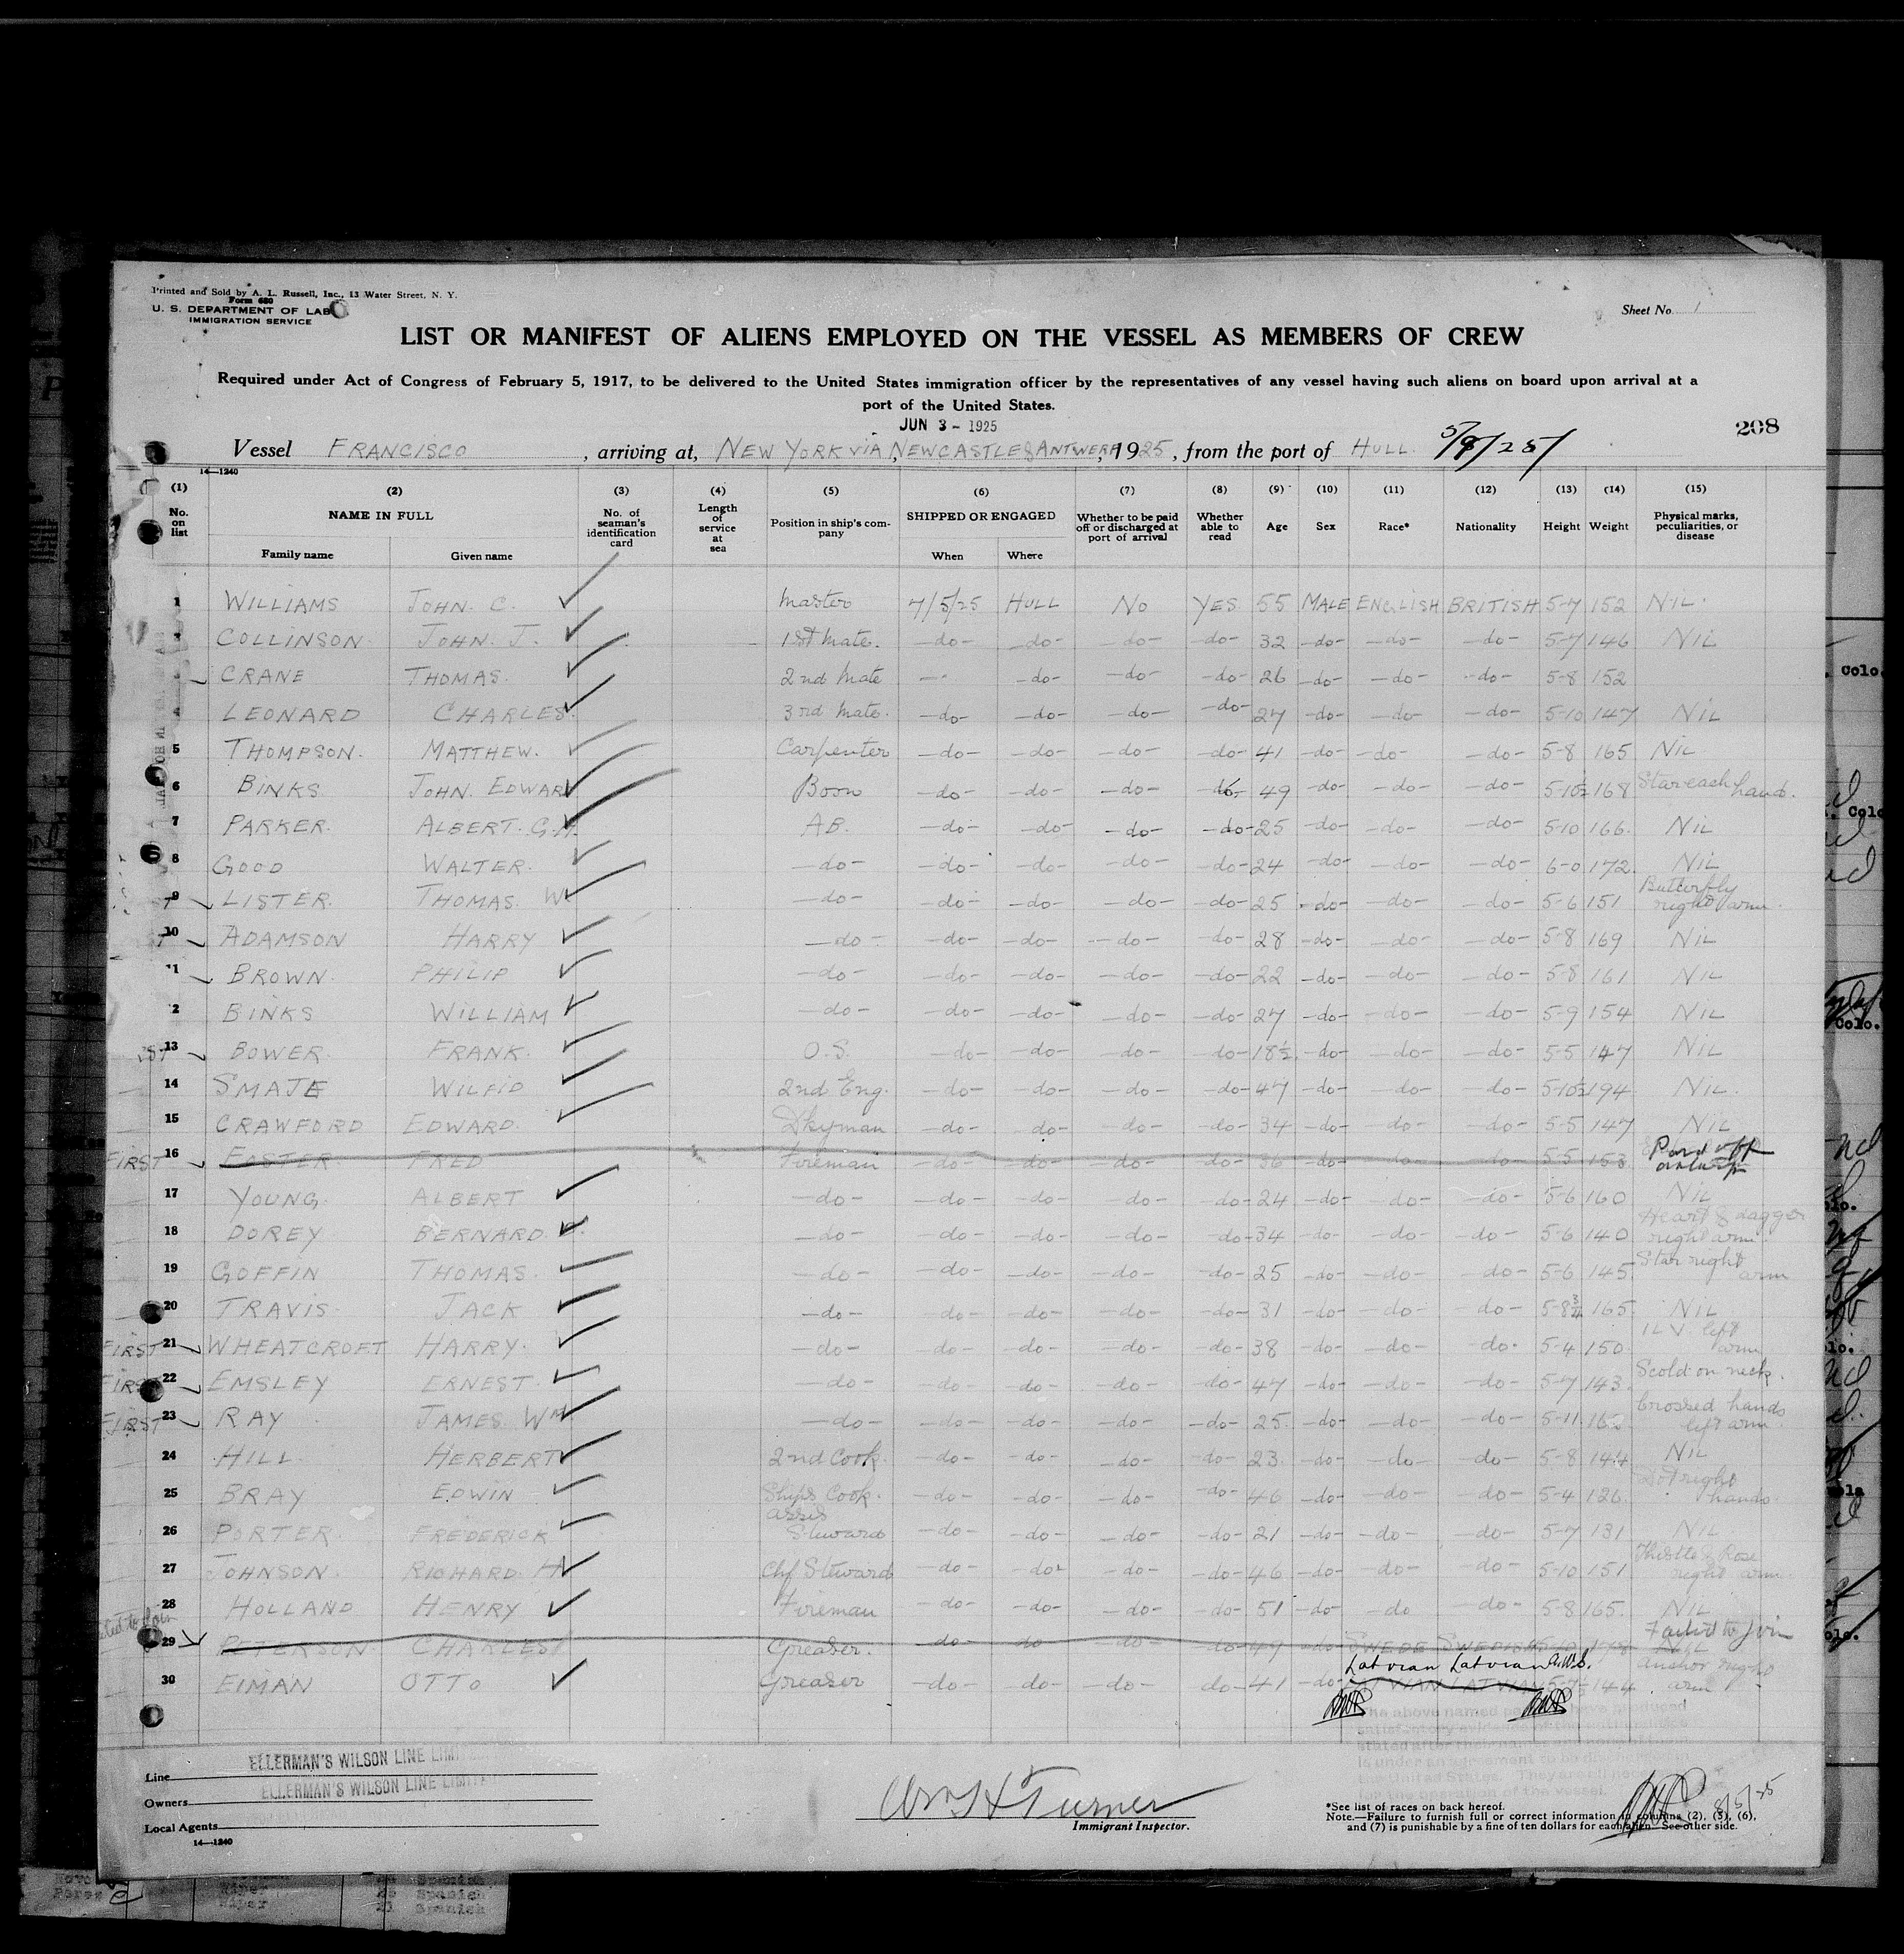 Printed and Sold by A. L. Russell, Inc., 13 Water Street, N. Y.
Form 680
U. S. DEPARTMENT OF LAB
IMMIGRATION SERVICE
Sheet No. 1
LIST OR MANIFEST OF ALIENS EMPLOYED ON THE VESSEL AS MEMBERS OF CREW
Required under Act of Congress of February 5, 1917, to be delivered to the United States immigration officer by the representatives of any vessel having such aliens on board upon arrival at a
port of the United States.
JUN 3 - 1925
208
Vessel FRANCISCO, arriving at, NEW YORK VIA NEWCASTLE & ANTWERP, 1925, from the port of HULL. 5/8/25
14—1240
(1) (2) (3) (4) (5) (6) (7) (8) (9) (10) (11) (12) (13) (14) (15)
No. on list NAME IN FULL Family name Given name No. of seaman's identification card Length of service at sea Position in ship's company SHIPPED OR ENGAGED When Where Whether to be paid off or discharged at port of arrival Whether able to read Age Sex Race* Nationality Height Weight Physical marks, peculiarities, or disease
1 WILLIAMS JOHN. C. Master 7/5/25 HULL NO YES 55 MALE ENGLISH BRITISH 5-7 152 NIL.
COLLINSON JOHN. J. 1st Mate. -do- -do- -do- -do- 32 -do- -do- -do- 5-7 146 NIL
CRANE THOMAS. 2nd Mate -do- -do- -do- 26 -do- -do- -do- 5-8 152
4 LEONARD CHARLES. 3rd Mate. -do- -do- -do- -do- 27 -do- -do- -do- 5-10 147 NIL
5 THOMPSON. MATTHEW. Carpenter -do- -do- -do- -do- 41 -do- -do- -do- 5-8 165 NIL
6 BINKS JOHN. EDWARD Bosn -do- -do- -do- -do- 49 -do- -do- -do- 5-10½ 168 Star each hand.
7 PARKER. ALBERT. G.H. AB. -do- -do- -do- -do- 25 -do- -do- -do- 5-10 166. NIL
8 GOOD WALTER. -do- -do- -do- -do- -do- 24 -do- -do- -do- 6-0 172. NIL
9 LISTER. THOMAS. W -do- -do- -do- -do- -do- 25 -do- -do- -do- 5-6 151 Butterfly right arm.
10 ADAMSON HARRY -do- -do- -do- -do- -do- 28 -do- -do- -do- 5-8 169 NIL
11 BROWN. PHILIP -do- -do- -do- -do- -do- 22 -do- -do- -do- 5-8 161 NIL
2 BINKS WILLIAM -do- -do- -do- -do- -do- 27 -do- -do- -do- 5-9 154 NIL
13 BOWER. FRANK. O.S. -do- -do- -do- -do- 18½ -do- -do- -do- 5-5 147 NIL
14 SMAJE WILFID 2nd Eng. -do- -do- -do- -do- 47 -do- -do- -do- 5-10½ 194 NIL.
15 CRAWFORD EDWARD. Dkyman -do- -do- -do- -do- 34 -do- -do- -do- 5-5 147 NIL
FIRST 16 FOSTER. FRED Fireman -do- -do- -do- -do- 36 -do- -do- -do- 5-5 153 Paid off
17 YOUNG. ALBERT -do- -do- -do- -do- -do- 24 -do- -do- -do- 5-6 160 NIL
18 DOREY BERNARD. -do- -do- -do- -do- -do- 34 -do- -do- -do- 5-6 140 Heart & dagger right arm.
19 GOFFIN THOMAS. -do- -do- -do- -do- -do- 25 -do- -do- -do- 5-6 145 Star right arm
20 TRAVIS. JACK -do- -do- -do- -do- -do- 31 -do- -do- -do- 5-8¾ 165. NIL
FIRST 21 WHEATCROFT HARRY. -do- -do- -do- -do- -do- 38 -do- -do- -do- 5-4 150 left arm
FIRST 22 EMSLEY ERNEST. -do- -do- -do- -do- -do- 47 -do- -do- -do- 5-7 143. Scold on neck.
FIRST 23 RAY JAMES WM -do- -do- -do- -do- -do- 25. -do- -do- -do- 5-11. Crossed hands left arm.
24 HILL HERBERT 2nd Cook. -do- -do- -do- -do- 23 -do- -do- -do- 5-8 144 NIL
25 BRAY EDWIN Ships Cook. -do- -do- -do- -do- 46 -do- -do- -do- 5-4 126. Dot right hand.
26 PORTER FREDERICK Assis Steward -do- -do- -do- -do- 21 -do- -do- -do- 5-7 131 NIL
27 JOHNSON. RICHARD. H Chf Steward -do- -do- -do- -do- 46 -do- -do- -do- 5-10 151 Thistle & Rose right arm.
28 HOLLAND HENRY Fireman -do- -do- -do- -do- 51 -do- -do -do- 5-8 165. NIL
29 PETERSON. CHARLES Greaser. -do- -do- -do- -do- 47 -do- SWEDE SWEDISH Failed to Join NIL
Latvian Latvian
30 EIMAN OTTO Greaser -do- -do- -do- -do- 41 -do- LATVIAN LATVIAN 5-7½ 144 anchor right arm
Line ELLERMAN'S WILSON LINE LIMITED
Owners ELLERMAN'S WILSON LINE LIMITED
Local Agents
14—1240
Wm H Turner
Immigrant Inspector.
*See list of races on back hereof.
Note.—Failure to furnish full or correct information in columns (2), (5), (6),
and (7) is punishable by a fine of ten dollars for each alien. See other side.
8/5/25